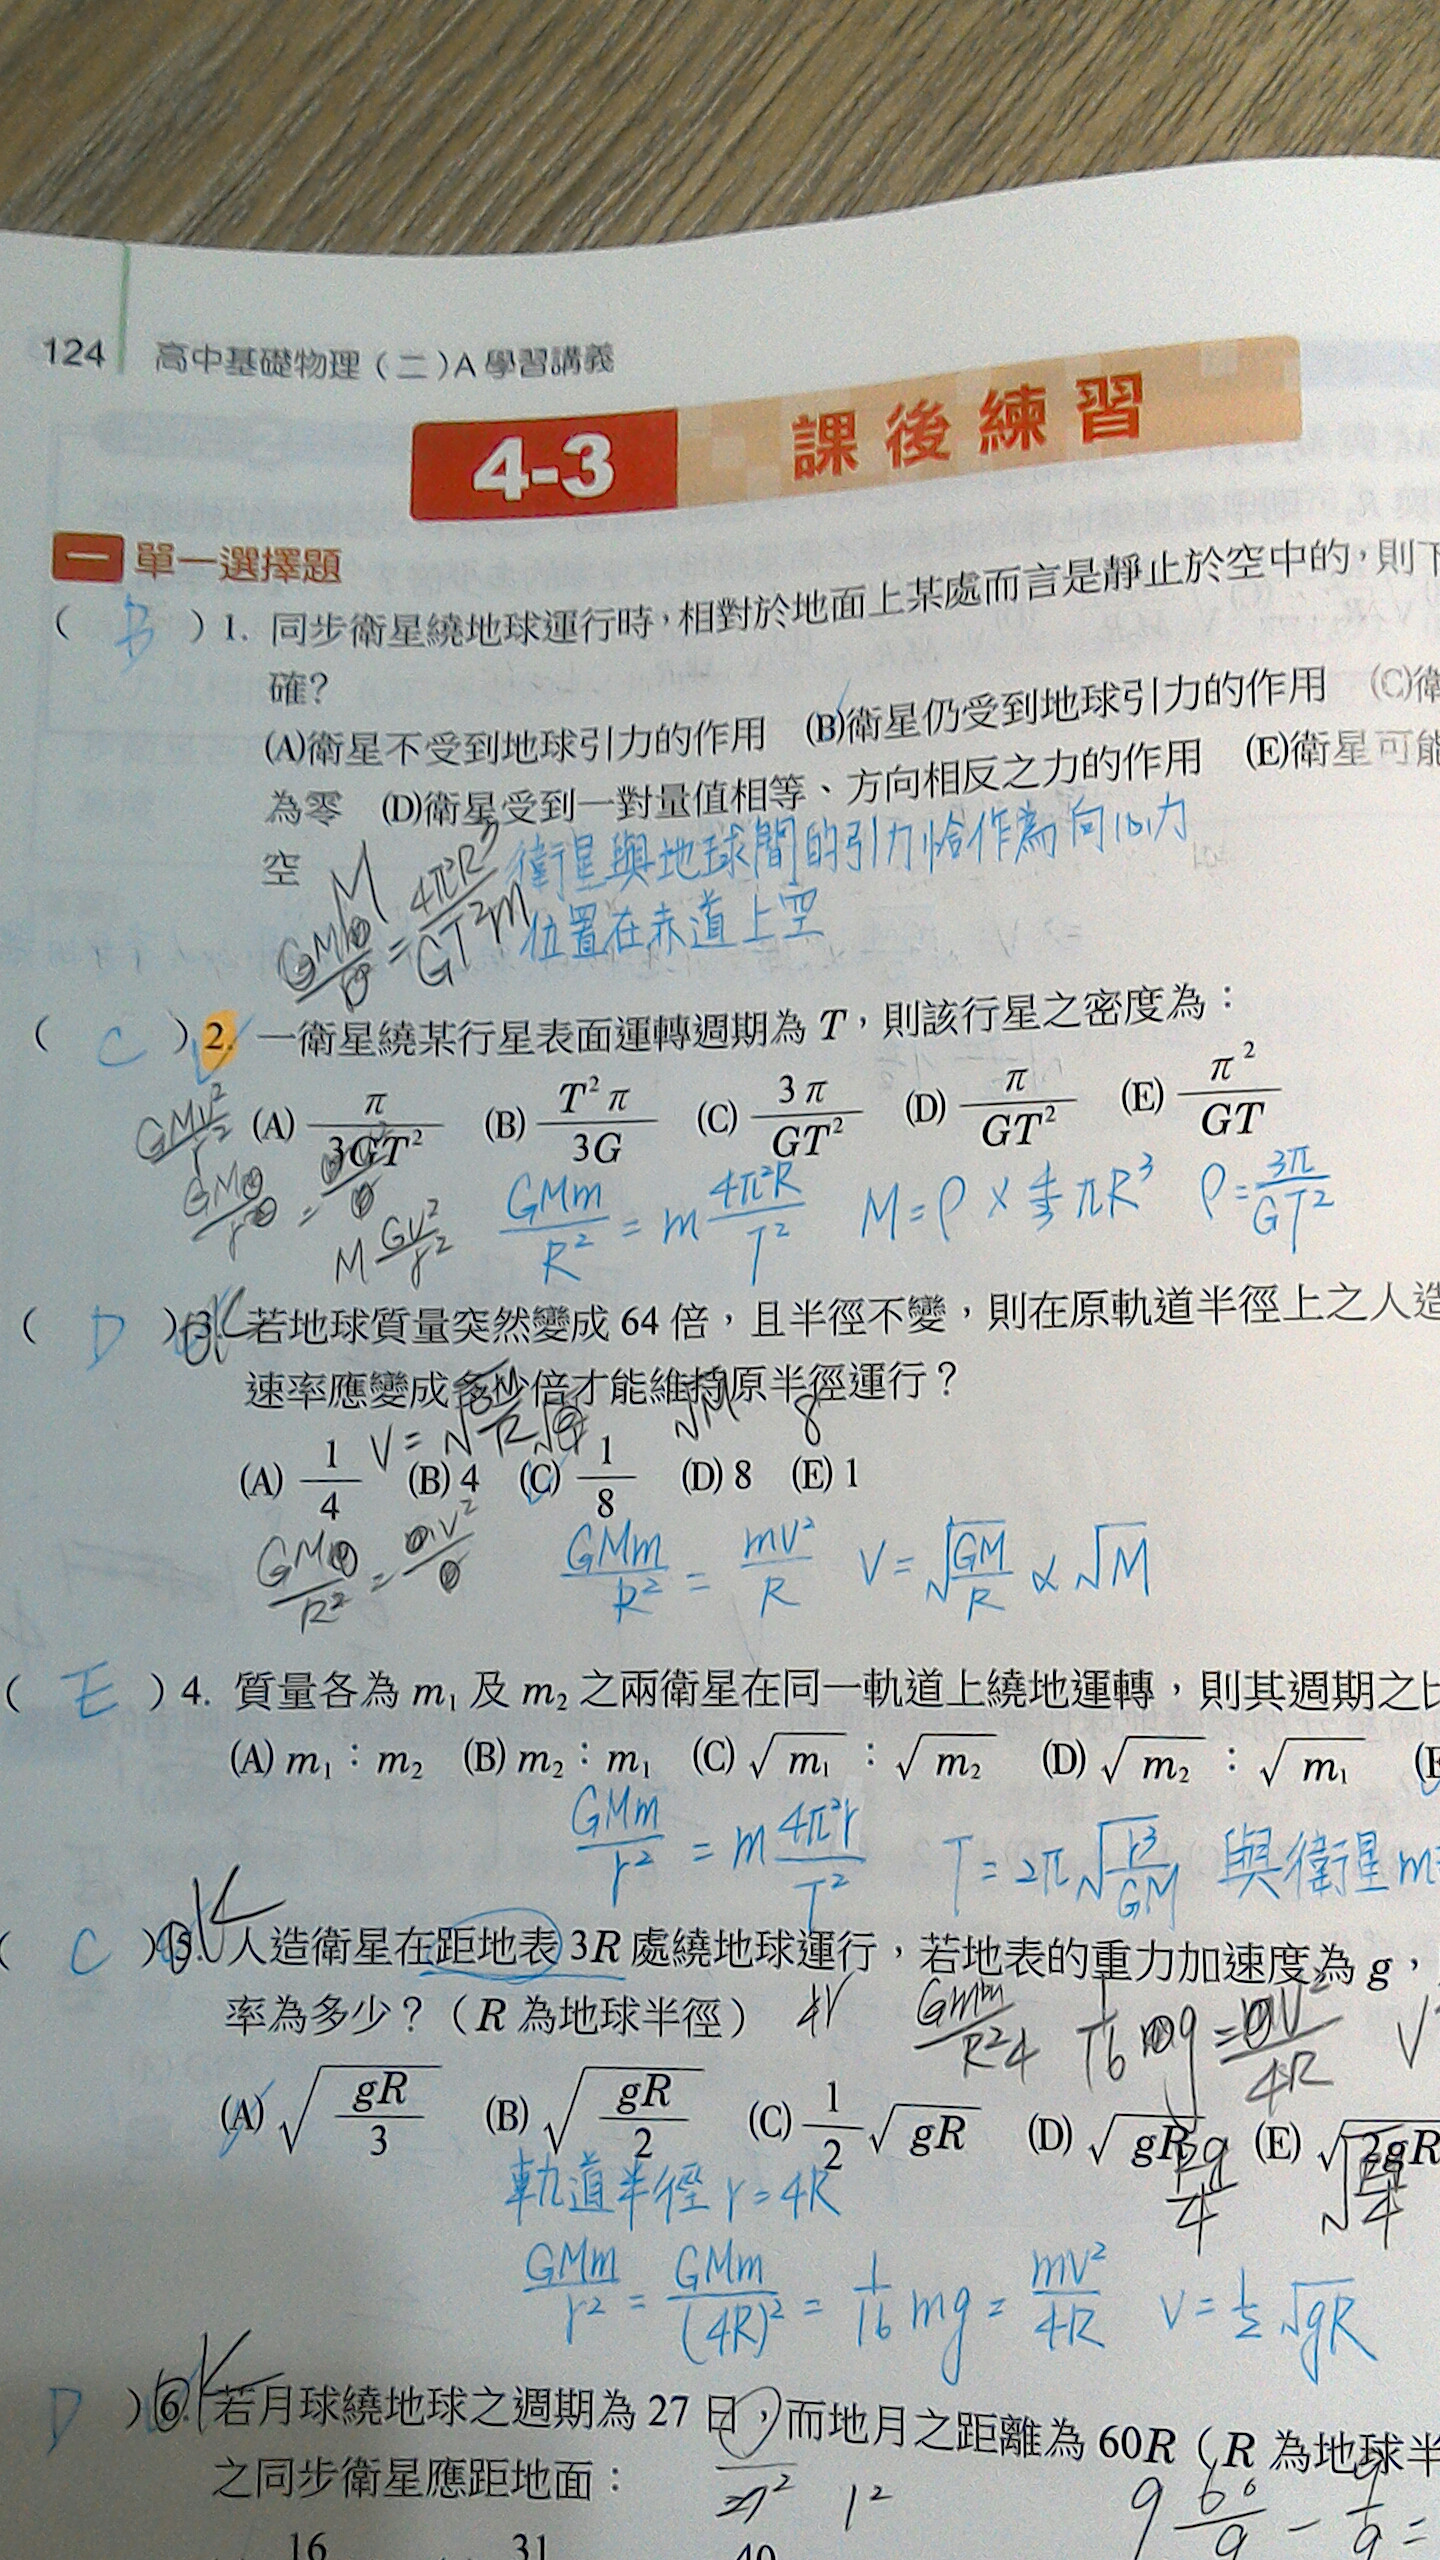 124 高中基礎物理(二)A 學習講義
4-3 課後練習
一 單一選擇題
( B ) 1. 同步衛星繞地球運行時,相對於地面上某處而言是靜止於空中的,則下
確?
(A)衛星不受到地球引力的作用 (B)衛星仍受到地球引力的作用 (C)衛
為零 (D)衛星受到一對量值相等、方向相反之力的作用 (E)衛星可能
空
衛星與地球間的引力恰作為向心力
位置在赤道上空
( C ) 2. 一衛星繞某行星表面運轉週期為 T,則該行星之密度為:
(A) π/3GT² (B) T²π/3G (C) 3π/GT² (D) π/GT² (E) π²/GT
GMm/R² = m 4π²R/T² M=ρ×4/3πR³ ρ=3π/GT²
( D ) 3. 若地球質量突然變成 64 倍,且半徑不變,則在原軌道半徑上之人造
速率應變成多少倍才能維持原半徑運行?
√M 8
(A) 1/4 (B) 4 (C) 1/8 (D) 8 (E) 1
GMm/R² = mV²/R V=√GM/R ∝ √M
( E ) 4. 質量各為 m₁ 及 m₂ 之兩衛星在同一軌道上繞地運轉,則其週期之比
(A) m₁:m₂ (B) m₂:m₁ (C) √m₁:√m₂ (D) √m₂:√m₁ (E
GMm/r² = m 4π²r/T² T=2π√r³/GM 與衛星m
( C ) 5. 人造衛星在距地表 3R 處繞地球運行,若地表的重力加速度為 g,
率為多少?(R 為地球半徑)
(A) √gR/3 (B) √gR/2 (C) 1/2 √gR (D) √gR (E) √2gR
軌道半徑 r=4R
GMm/r² = GMm/(4R)² = 1/16 mg = mV²/4R V=1/2 √gR
D ) 6. 若月球繞地球之週期為 27 日,而地月之距離為 60R(R 為地球半
之同步衛星應距地面:
16 31 40